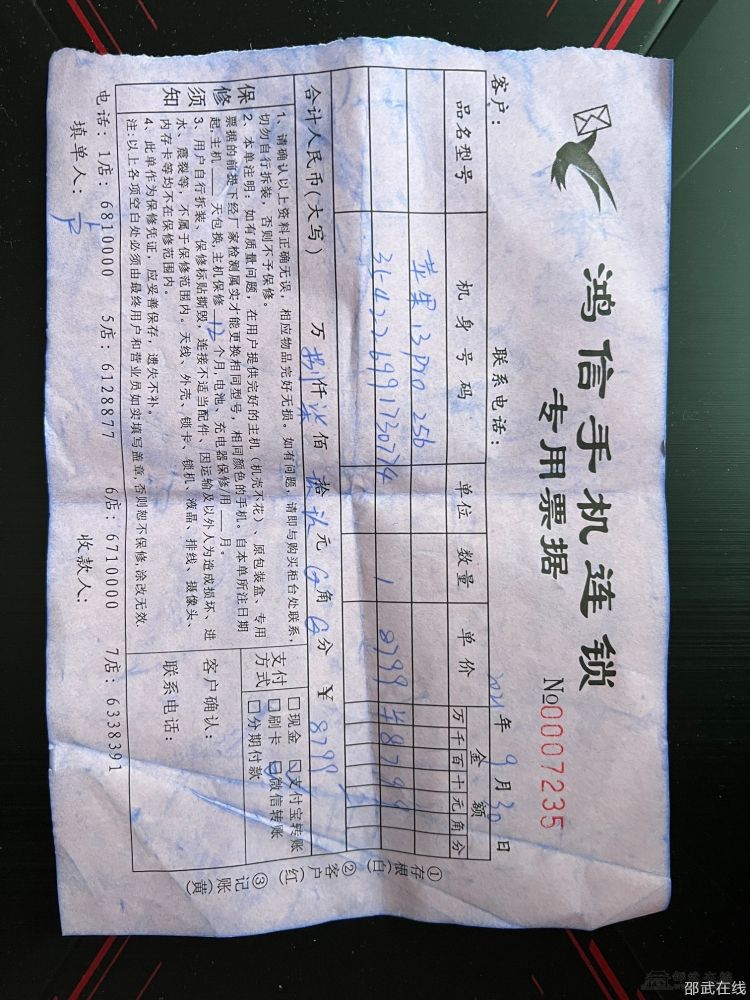 鸿信手机连锁
专用票据
№0007235
客户：
联系电话：
2021年9月30日
品名型号
机身号码
单位
数量
单价
金额
万千百十元角分
苹果13pro 256
1
8799
¥8799
合计人民币(大写)
万捌仟柒佰玖拾玖元
角
分
¥8799
保修须知
1、请确认以上资料正确无误，相应物品完好无损。如有问题，请即与购买柜台处联系，
切勿自行拆装，否则不予保修。
2、本单注明：如有质量问题，在用户提供完好的主机（机壳不花）、原包装盒、专用
票据的前提下经厂家检测属实才能更换相同型号，相同颜色的手机。自本单所注日期
起主机 天包换，主机保修12个月，电池、充电器保修/用 月。
3、用户自行拆装、保修标贴撕毁，连接不适当配件、因运输及以外人为造成损坏、进
水、震裂等，不属于保修范围内。天线、外壳、锁卡、锁机、液晶、排线、摄像头、
内存卡等均不在保修范围内。
4、此单作为保修凭证，应妥善保存，遗失不补。
注：以上各项空白处必须由最终用户和营业员如实填写盖章，否则恕不保修，涂改无效.
支付方式
□现金 □支付宝转账
□刷卡 □微信转账
□分期付款
客户确认：
联系电话：
①存根(白) ②客户(红) ③记账(黄)
电话：1店：6810000 5店：6128877 6店：6710000 7店：6338391
填单人：
收款人：
邵武在线